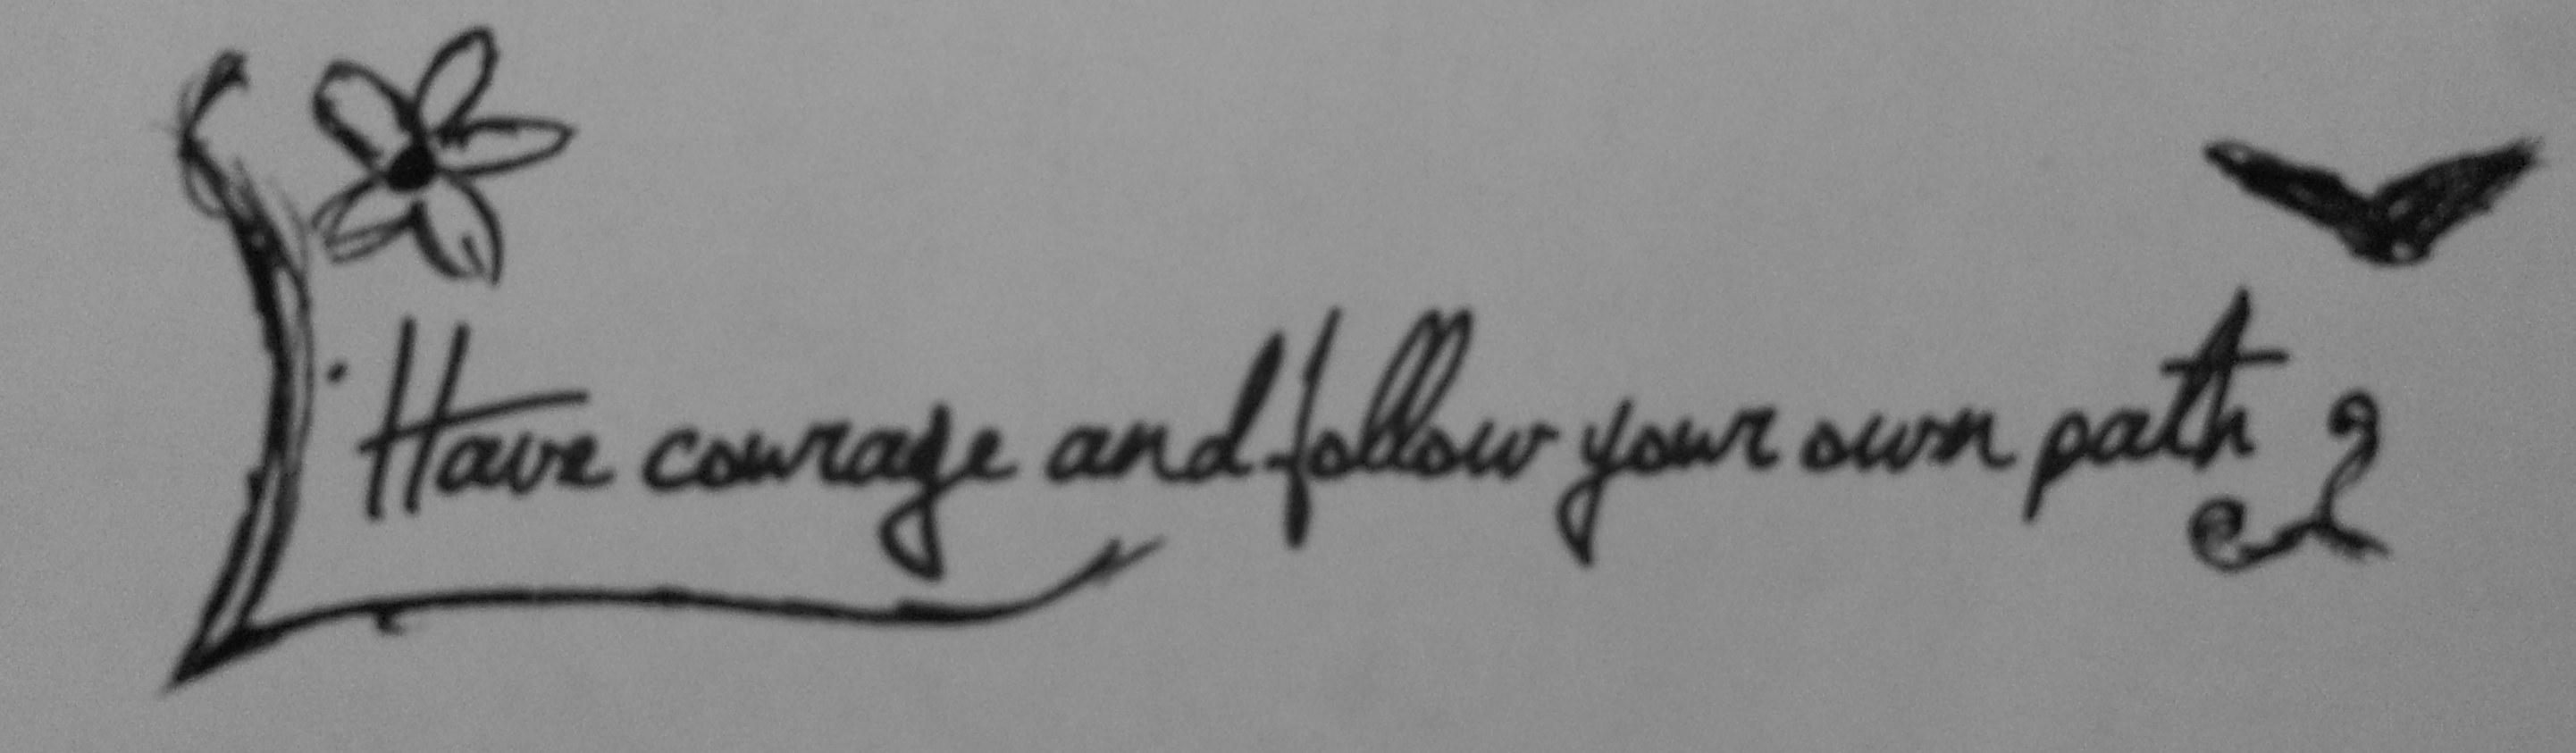 Have courage and follow your own path